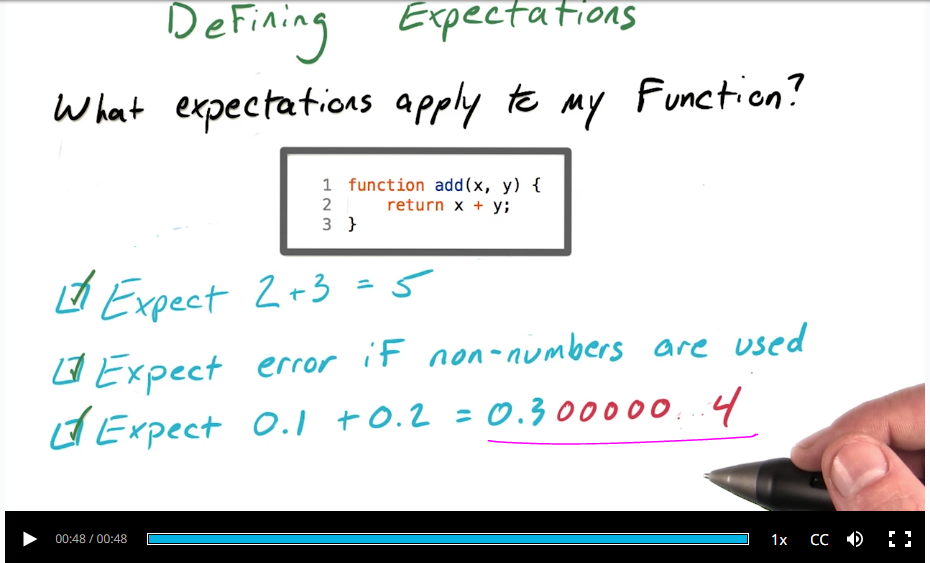 Defining Expectations
What expectations apply to my Function?
1 function add(x, y) {
2 return x + y;
3 }
Expect 2+3 = 5
Expect error if non-numbers are used
Expect 0.1 + 0.2 = 0.300000...4
00:48 / 00:48 1x CC